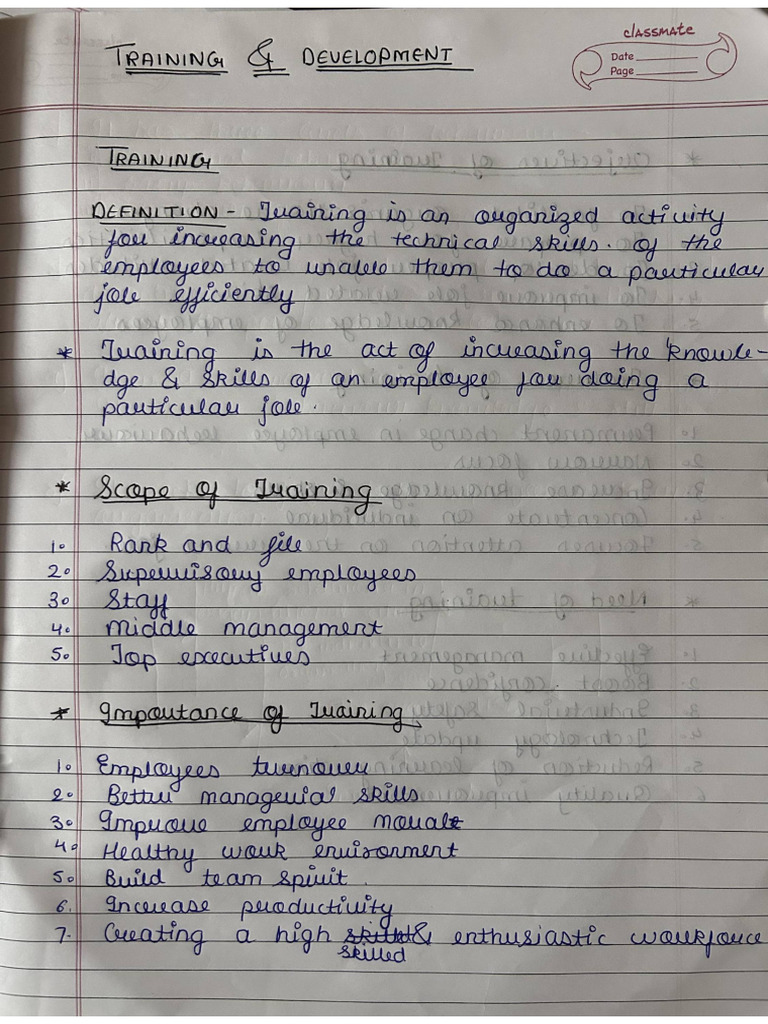 classmate
Date
Page
TRAINING & DEVELOPMENT
TRAINING
DEFINITION - Training is an organized activity
for increasing the technical skills. of the
employees to unable them to do a particular
job efficiently
* Training is the act of increasing the knowle-
dge & skills of an employee for doing a
particular job.
* Scope of Training
1. Rank and file
2. Supervisory employees
3. Staff
4. Middle management
5. Top executives
* Importance of Training
1. Employees turnover
2. Better managerial skills
3. Improve employee morale
4. Healthy work environment
5. Build team spirit.
6. Increase productivity
7. Creating a high & enthusiastic workforce
skilled